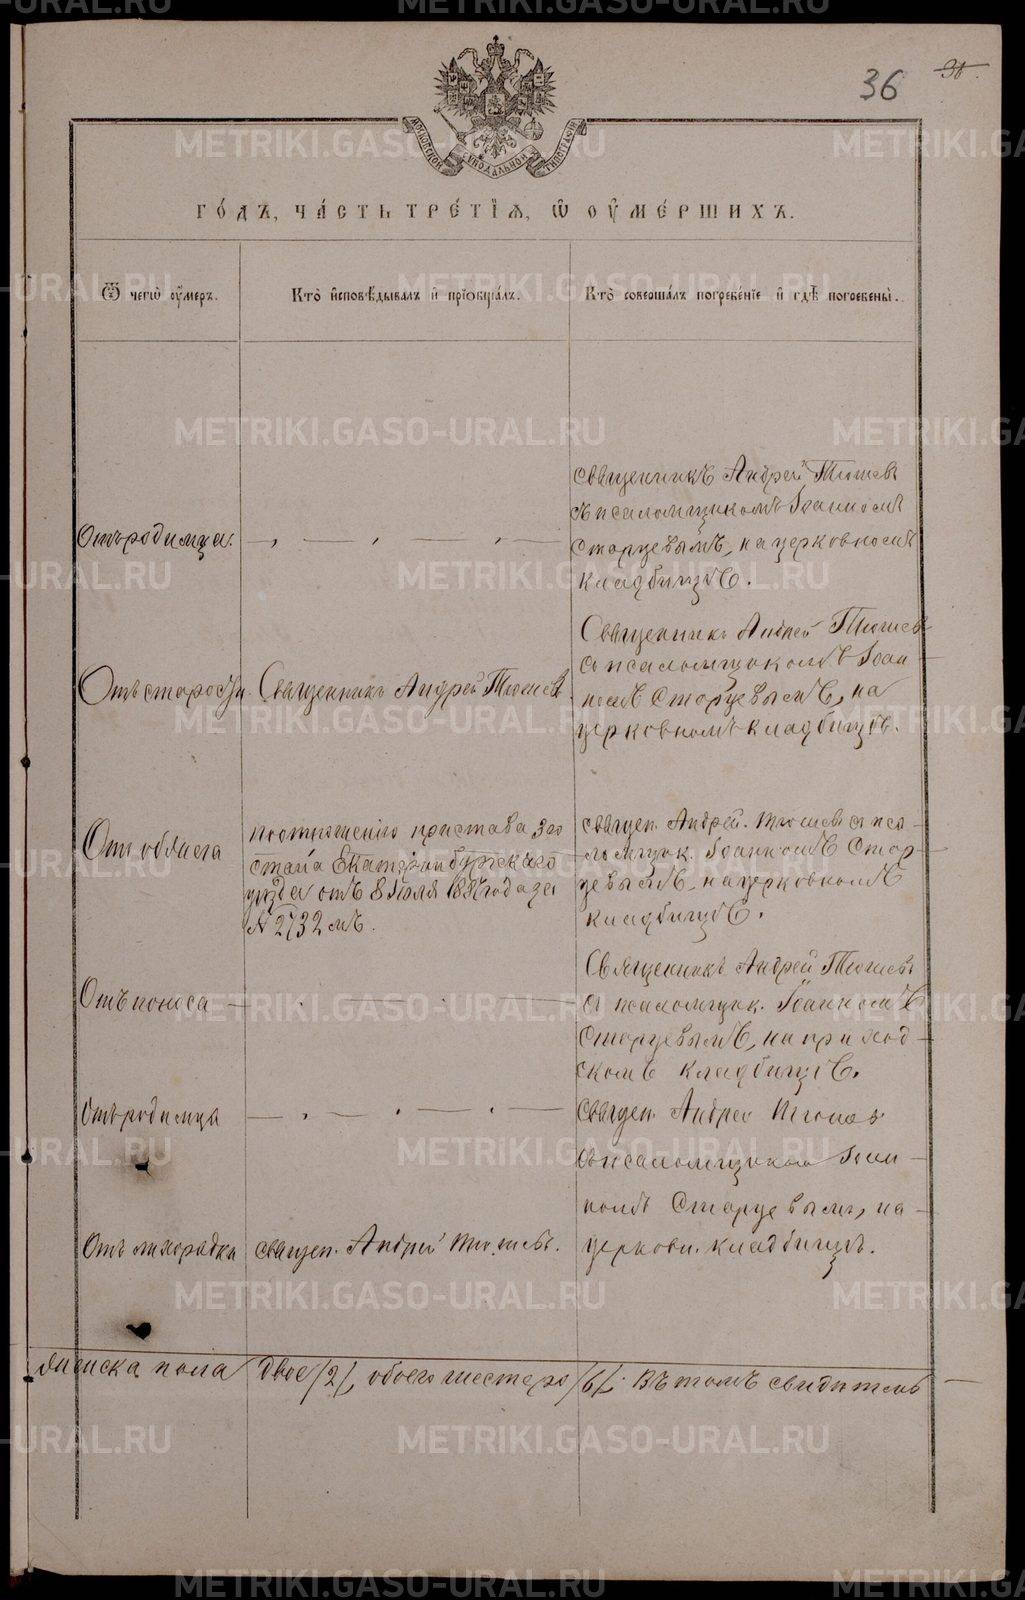 36
МОСКОВСКОЙ СѴНОДАЛЬНОЙ ТИПОГРАФІИ
ГО́ДЪ, ЧА́СТЬ ТРЕ́ТІѦ, Ѿ ОУМЕ́РШИХЪ.
Ѿ чегѡ̀ оу҆́меръ.
Кто̀ и҆сповѣ́дывалъ и҆ прїѡбща́лъ.
Кто̀ соверша́лъ погребе́нїе и҆ гдѣ̀ погребены̀.
Отъ родимца.
священникъ Андрей Тюшев
съ псаломщикомъ Іоанномъ
Старцевымъ, на церковномъ
кладбищѣ.
Отъ старости.
Священникъ Андрей Тюшев
Священникъ Андрей Тюшев
съ псаломщикомъ Іоан-
номъ Старцевымъ, на
церковномъ кладбищѣ.
по отношенію пристава 3го
стана Екатеринбургскаго
уѣзда отъ 8 Іюля 1887 года за
№ 2732 мъ.
священ. Андрей Тюшев с пса-
ломщик. Іоанномъ Стар-
цевымъ, на церковномъ
кладбищѣ.
Отъ поноса
Священникъ Андрей Тюшевъ
с псаломщик. Іоанномъ
Старцевымъ, на приход-
скомъ кладбищѣ.
Отъ родимца
священ. Андрей Тюшев
съ псаломщиком Іоан-
номъ Старцевымъ, на
церковн. кладбищѣ.
Отъ лихорадки
священ. Андрей Тюшевъ.
женска пола двое /2/, обоего шестеро /6/. Въ томъ свидѣтель
METRIKI.GASO-URAL.RU